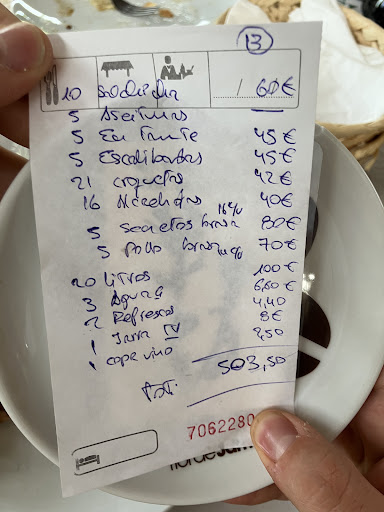 13
10 60€
5 Aceitunas
5 Entrante 45€
5 Escalibadas 45€
21 croquetas 42€
16 40€
5 secretos brasa 16€/u 80€
5 pollo brasa 70€
20 litros 100€
3 Aguas 6,60€
2 Refrescos 4,40
1 Jarra 8€
1 copa vino 2,50
Tot. 503,50
7062280